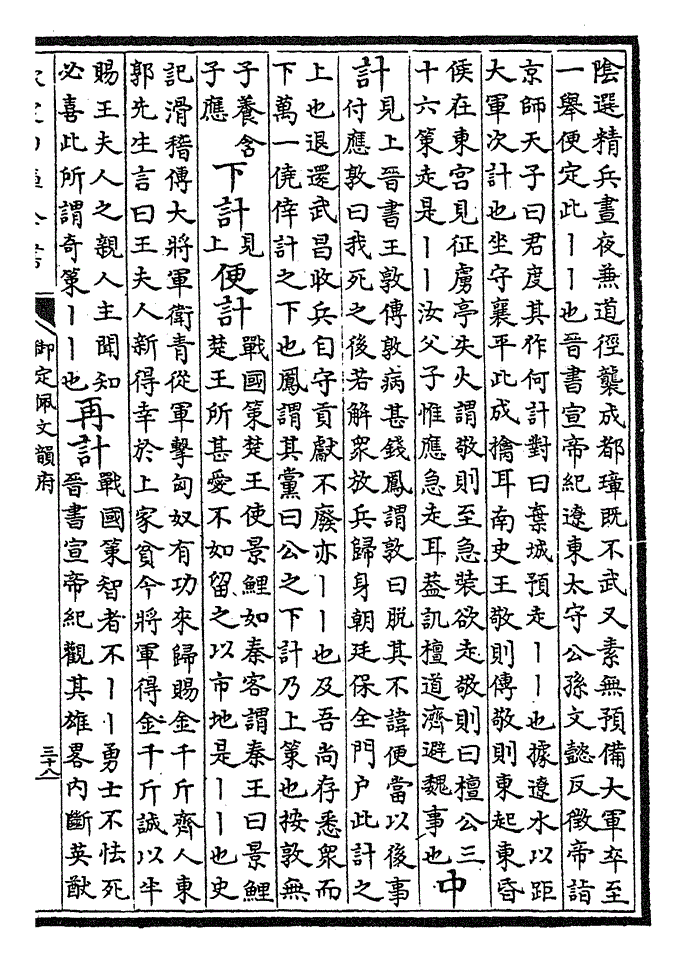 陰選精兵晝夜兼道徑襲成都璋既不武又素無預備大軍卒至
一舉便定此丨丨也晉書宣帝紀遼東太守公孫文懿反徵帝詣
京師天子曰君度其作何計對曰棄城預走丨丨也據遼水以距
大軍次計也坐守襄平此成擒耳南史王敬則傳敬則東起東昏
侯在東宮見征虜亭失火謂敬則至急裝欲走敬則曰檀公三
十六策走是丨丨汝父子惟應急走耳葢譏檀道濟避魏事也
中
計
見上晉書王敦傳敦病甚錢鳳謂敦曰脫其不諱便當以後事
付應敦曰我死之後若解衆放兵歸身朝廷保全門户此計之
上也退還武昌收兵自守貢獻不廢亦丨丨也及吾尚存悉衆而
下萬一僥倖計之下也鳳謂其黨曰公之下計乃上策也按敦無
子養含
子應
下計
見
上
便計
戰國策楚王使景鯉如秦客謂秦王曰景鯉
楚王所甚愛不如留之以市地是丨丨也史
記滑稽傳大將軍衛青從軍擊匈奴有功來歸賜金千斤齊人東
郭先生言曰王夫人新得幸於上家貧今將軍得金千斤誠以半
賜王夫人之親人主聞知
必喜此所謂奇策丨丨也
再計
戰國策智者不丨丨勇士不怯死
晉書宣帝紀觀其雄畧内斷英猷
御定佩文韻府
三十八